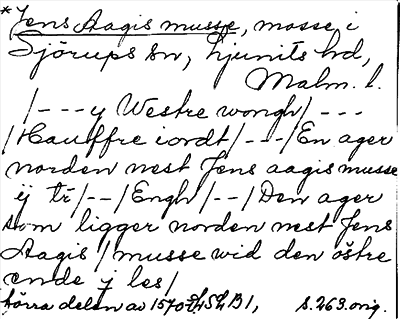 *Jens Aagis musse, mosse i
Sjörups sn, Ljunits hd,
Malm. l.
/---y Westre wongh/---
/Hauffre iordt/---/En ager
norden nest Jens aagis musse
ij tr/--/Engh/--/Den ager
som ligger norden nest Jens
Aagis / musse wid den östre
ende y les/
Norra delen av 1570 B1, s. 263. orig.